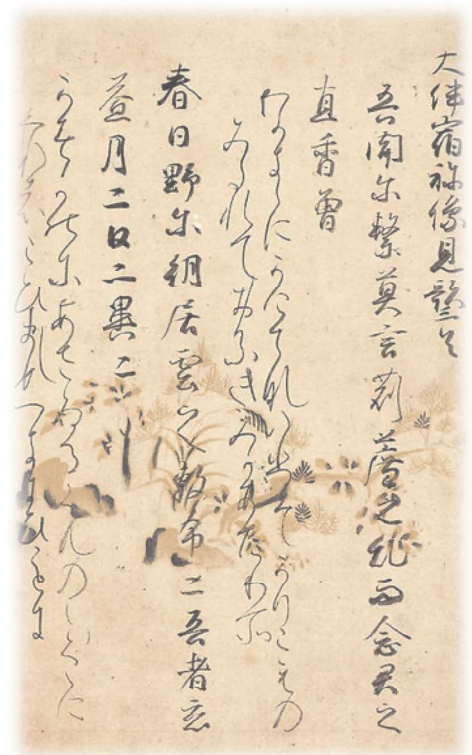 大伴宿祢像見謌三首
吾聞尓繋莫言苅薦之乱而念君之
直香曽
わかきくにかけてないひそかりこもの
みたれておもふきみかたゝかそ
春日野尓朝居雲之敷布二吾者恋
益月二日二異二
かすかのにあさゐるくものしく〳〵に